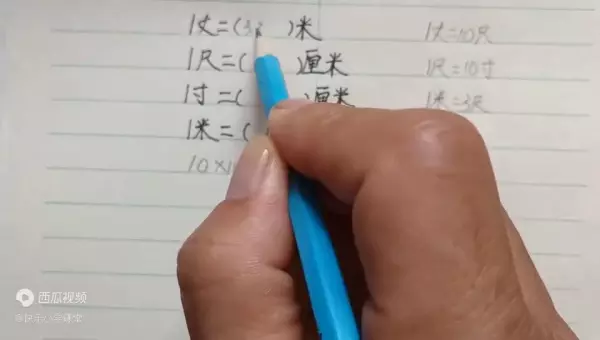 1丈=(3.  )米
1尺=(  )厘米
1寸=(  )厘米
1米=(
10×1
1丈=10尺
1尺=10寸
1米=3尺
西瓜视频